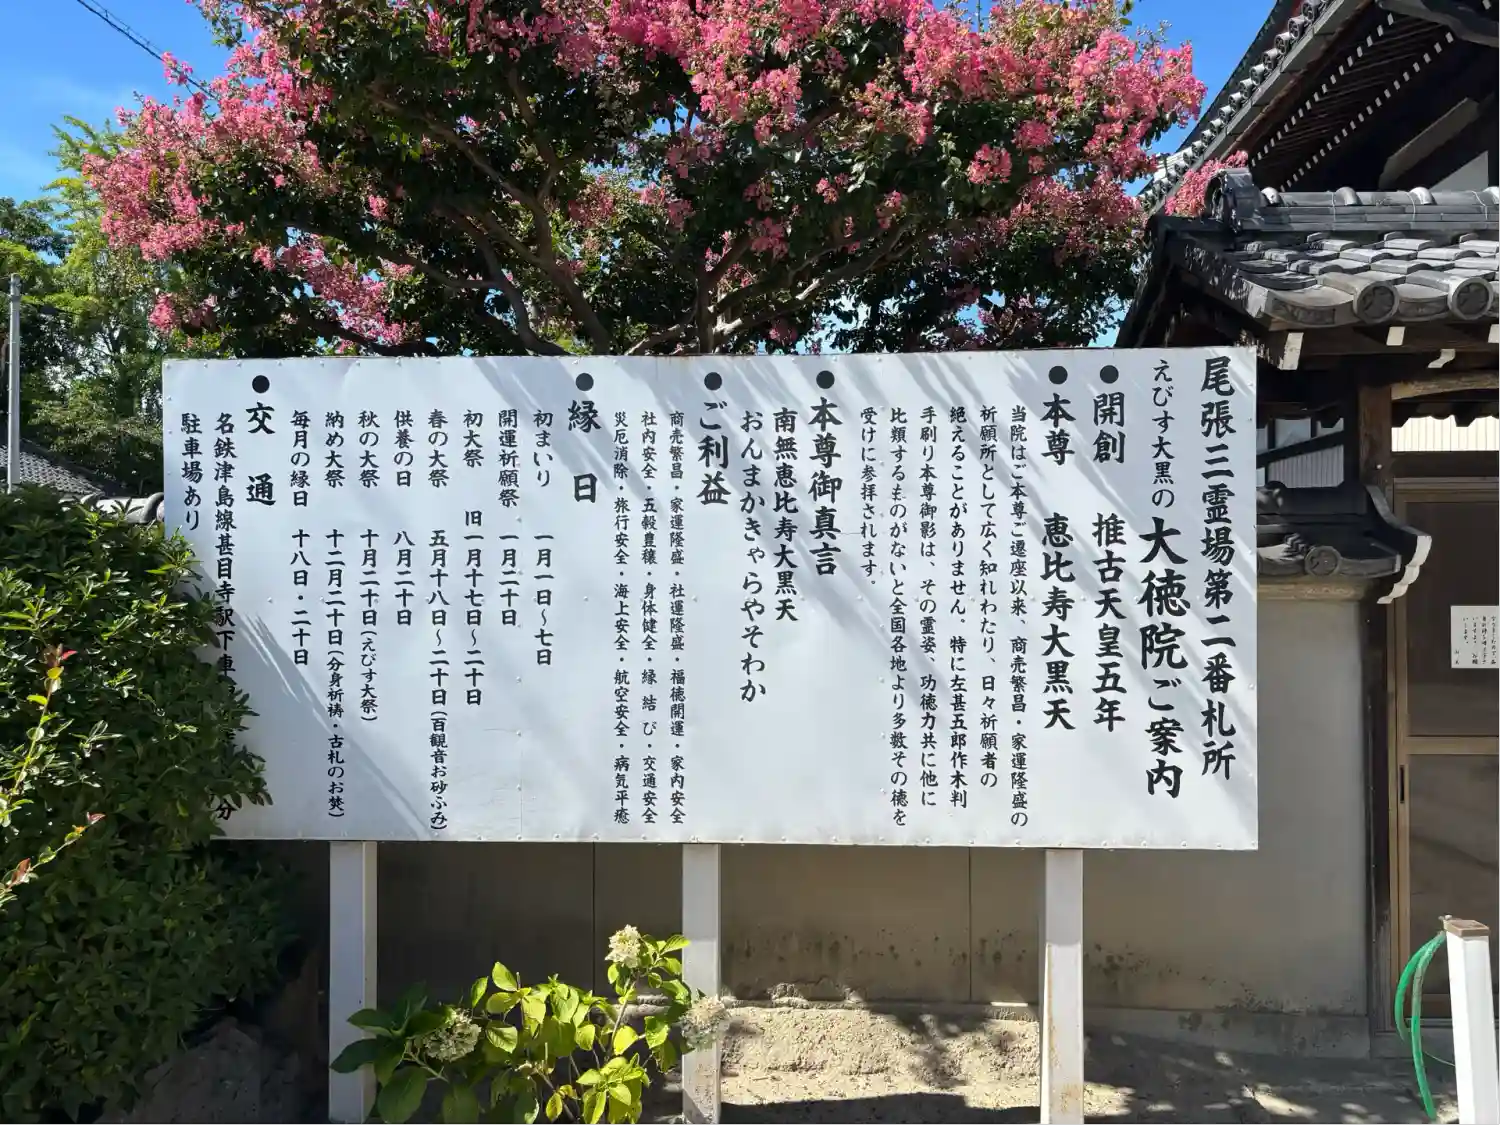 尾張三霊場第二番札所
えびす大黒の大徳院ご案内
●開創 推古天皇五年
●本尊 恵比寿大黒天
当院はご本尊ご遷座以来、商売繁昌・家運隆盛の
祈願所として広く知れわたり、日々祈願者の
絶えることがありません。特に左甚五郎作木判
手刷り本尊御影は、その霊姿、功徳力共に他に
比類するものがないと全国各地より多数その徳を
受けに参拝されます。
●本尊御真言
南無恵比寿大黒天
おんまかきゃらやそわか
●ご利益
商売繁昌・家運隆盛・社運隆盛・福徳開運・家内安全
社内安全・五穀豊穣・身体健全・縁結び・交通安全
災厄消除・旅行安全・海上安全・航空安全・病気平癒
●縁日
初まいり 一月一日〜七日
開運祈願祭 一月二十日
初大祭 旧一月十七日〜二十日
春の大祭 五月十八日〜二十日(百観音お砂ふみ)
供養の日 八月二十日
秋の大祭 十月二十日(えびす大祭)
納め大祭 十二月二十日(分身祈祷・古札のお焚)
毎月の縁日 十八日・二十日
●交通
名鉄津島線甚目寺駅下車 分
駐車場あり